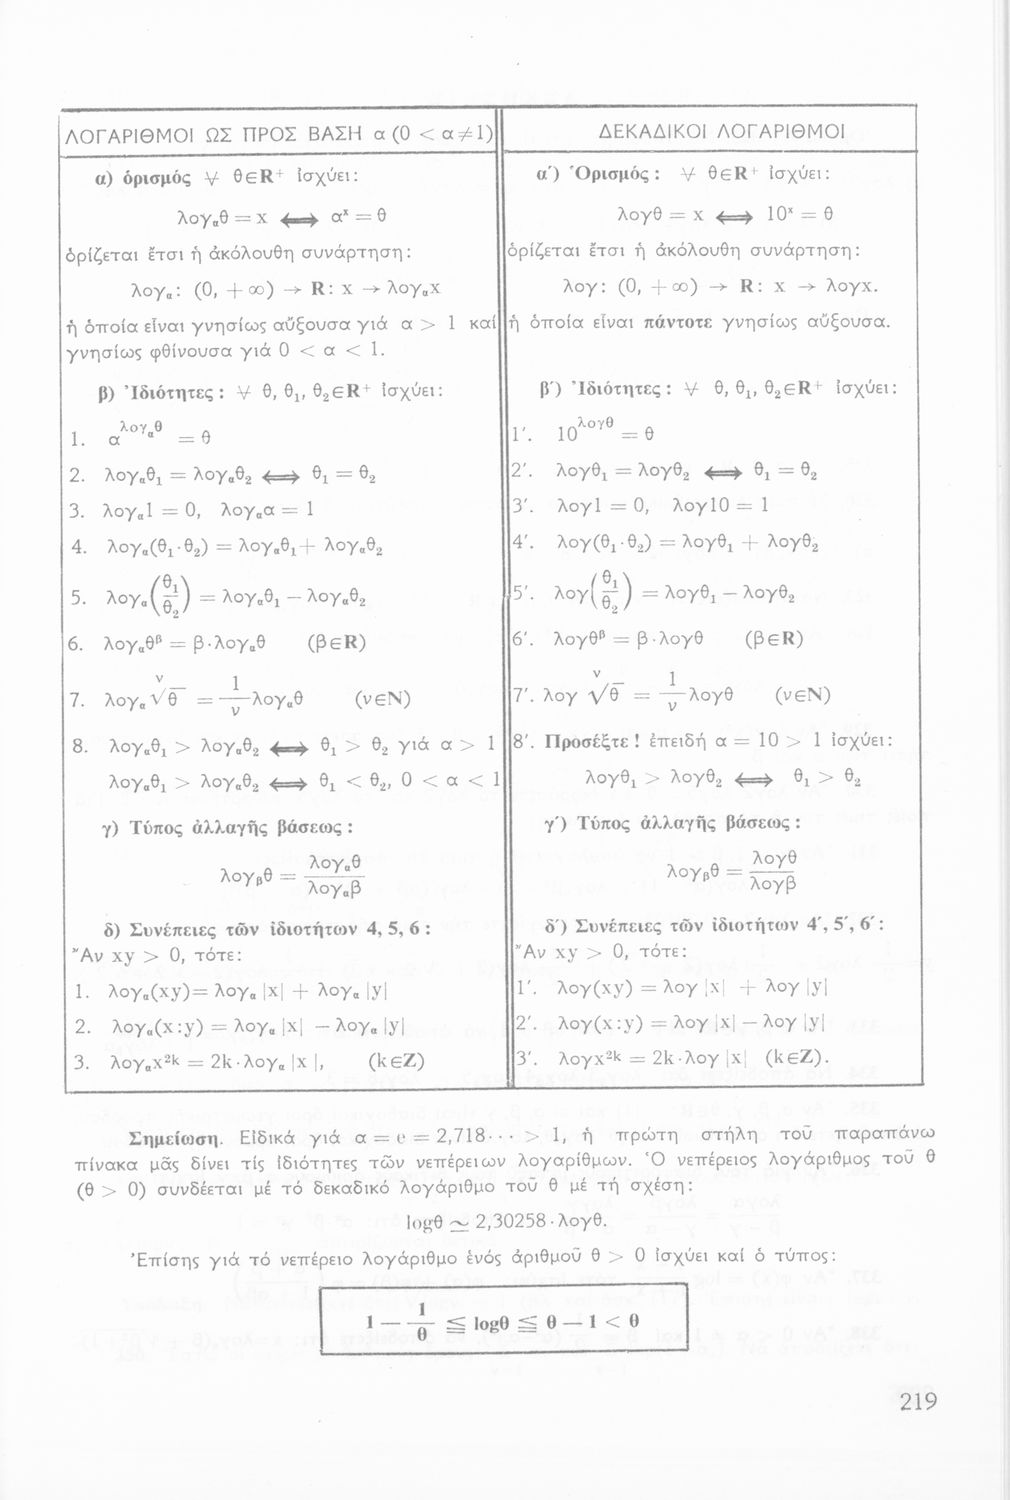 ΛΟΓΑΡΙΘΜΟΙ ΩΣ ΠΡΟΣ ΒΑΣΗ α (0 < α ≠ 1)
α) ὁρισμός ∀ θ∈R⁺ ἰσχύει:
λογₐθ = x ⟺ αˣ = θ
ὁρίζεται ἔτσι ἡ ἀκόλουθη συνάρτηση:
λογₐ: (0, +∞) → R: x → λογₐx
ἡ ὁποία εἶναι γνησίως αὔξουσα γιά α > 1 καί
γνησίως φθίνουσα γιά 0 < α < 1.
β) Ἰδιότητες: ∀ θ, θ₁, θ₂∈R⁺ ἰσχύει:
1. α^(λογₐθ) = θ
2. λογₐθ₁ = λογₐθ₂ ⟺ θ₁ = θ₂
3. λογₐ1 = 0, λογₐα = 1
4. λογₐ(θ₁·θ₂) = λογₐθ₁ + λογₐθ₂
5. λογₐ(θ₁/θ₂) = λογₐθ₁ — λογₐθ₂
6. λογₐθᵝ = β·λογₐθ (β∈R)
7. λογₐ ᵛ√θ = 1/ν λογₐθ (ν∈N)
8. λογₐθ₁ > λογₐθ₂ ⟺ θ₁ > θ₂ γιά α > 1
λογₐθ₁ > λογₐθ₂ ⟺ θ₁ < θ₂, 0 < α < 1
γ) Τύπος ἀλλαγῆς βάσεως:
λογᵦθ = λογₐθ/λογₐβ
δ) Συνέπειες τῶν ἰδιοτήτων 4, 5, 6:
Ἄν xy > 0, τότε:
1. λογₐ(xy) = λογₐ |x| + λογₐ |y|
2. λογₐ(x:y) = λογₐ |x| — λογₐ |y|
3. λογₐx²ᵏ = 2k·λογₐ |x|, (k∈Z)
ΔΕΚΑΔΙΚΟΙ ΛΟΓΑΡΙΘΜΟΙ
α′) Ὁρισμός: ∀ θ∈R⁺ ἰσχύει:
λογθ = x ⟺ 10ˣ = θ
ὁρίζεται ἔτσι ἡ ἀκόλουθη συνάρτηση:
λογ: (0, +∞) → R: x → λογx.
ἡ ὁποία εἶναι πάντοτε γνησίως αὔξουσα.
β′) Ἰδιότητες: ∀ θ, θ₁, θ₂∈R⁺ ἰσχύει:
1′. 10^(λογθ) = θ
2′. λογθ₁ = λογθ₂ ⟺ θ₁ = θ₂
3′. λογ1 = 0, λογ10 = 1
4′. λογ(θ₁·θ₂) = λογθ₁ + λογθ₂
5′. λογ(θ₁/θ₂) = λογθ₁ — λογθ₂
6′. λογθᵝ = β·λογθ (β∈R)
7′. λογ ᵛ√θ = 1/ν λογθ (ν∈N)
8′. Προσέξτε! ἐπειδή α = 10 > 1 ἰσχύει:
λογθ₁ > λογθ₂ ⟺ θ₁ > θ₂
γ′) Τύπος ἀλλαγῆς βάσεως:
λογᵦθ = λογθ/λογβ
δ′) Συνέπειες τῶν ἰδιοτήτων 4′, 5′, 6′:
Ἄν xy > 0, τότε:
1′. λογ(xy) = λογ |x| + λογ |y|
2′. λογ(x:y) = λογ |x| — λογ |y|
3′. λογx²ᵏ = 2k·λογ |x| (k∈Z).
Σημείωση. Εἰδικά γιά α = e = 2,718··· > 1, ἡ πρώτη στήλη τοῦ παραπάνω
πίνακα μᾶς δίνει τίς ἰδιότητες τῶν νεπέρειων λογαρίθμων. Ὁ νεπέρειος λογάριθμος τοῦ θ
(θ > 0) συνδέεται μέ τό δεκαδικό λογάριθμο τοῦ θ μέ τή σχέση:
logθ ≃ 2,30258·λογθ.
Ἐπίσης γιά τό νεπέρειο λογάριθμο ἑνός ἀριθμοῦ θ > 0 ἰσχύει καί ὁ τύπος:
1 — 1/θ ≦ logθ ≦ θ — 1 < θ
219